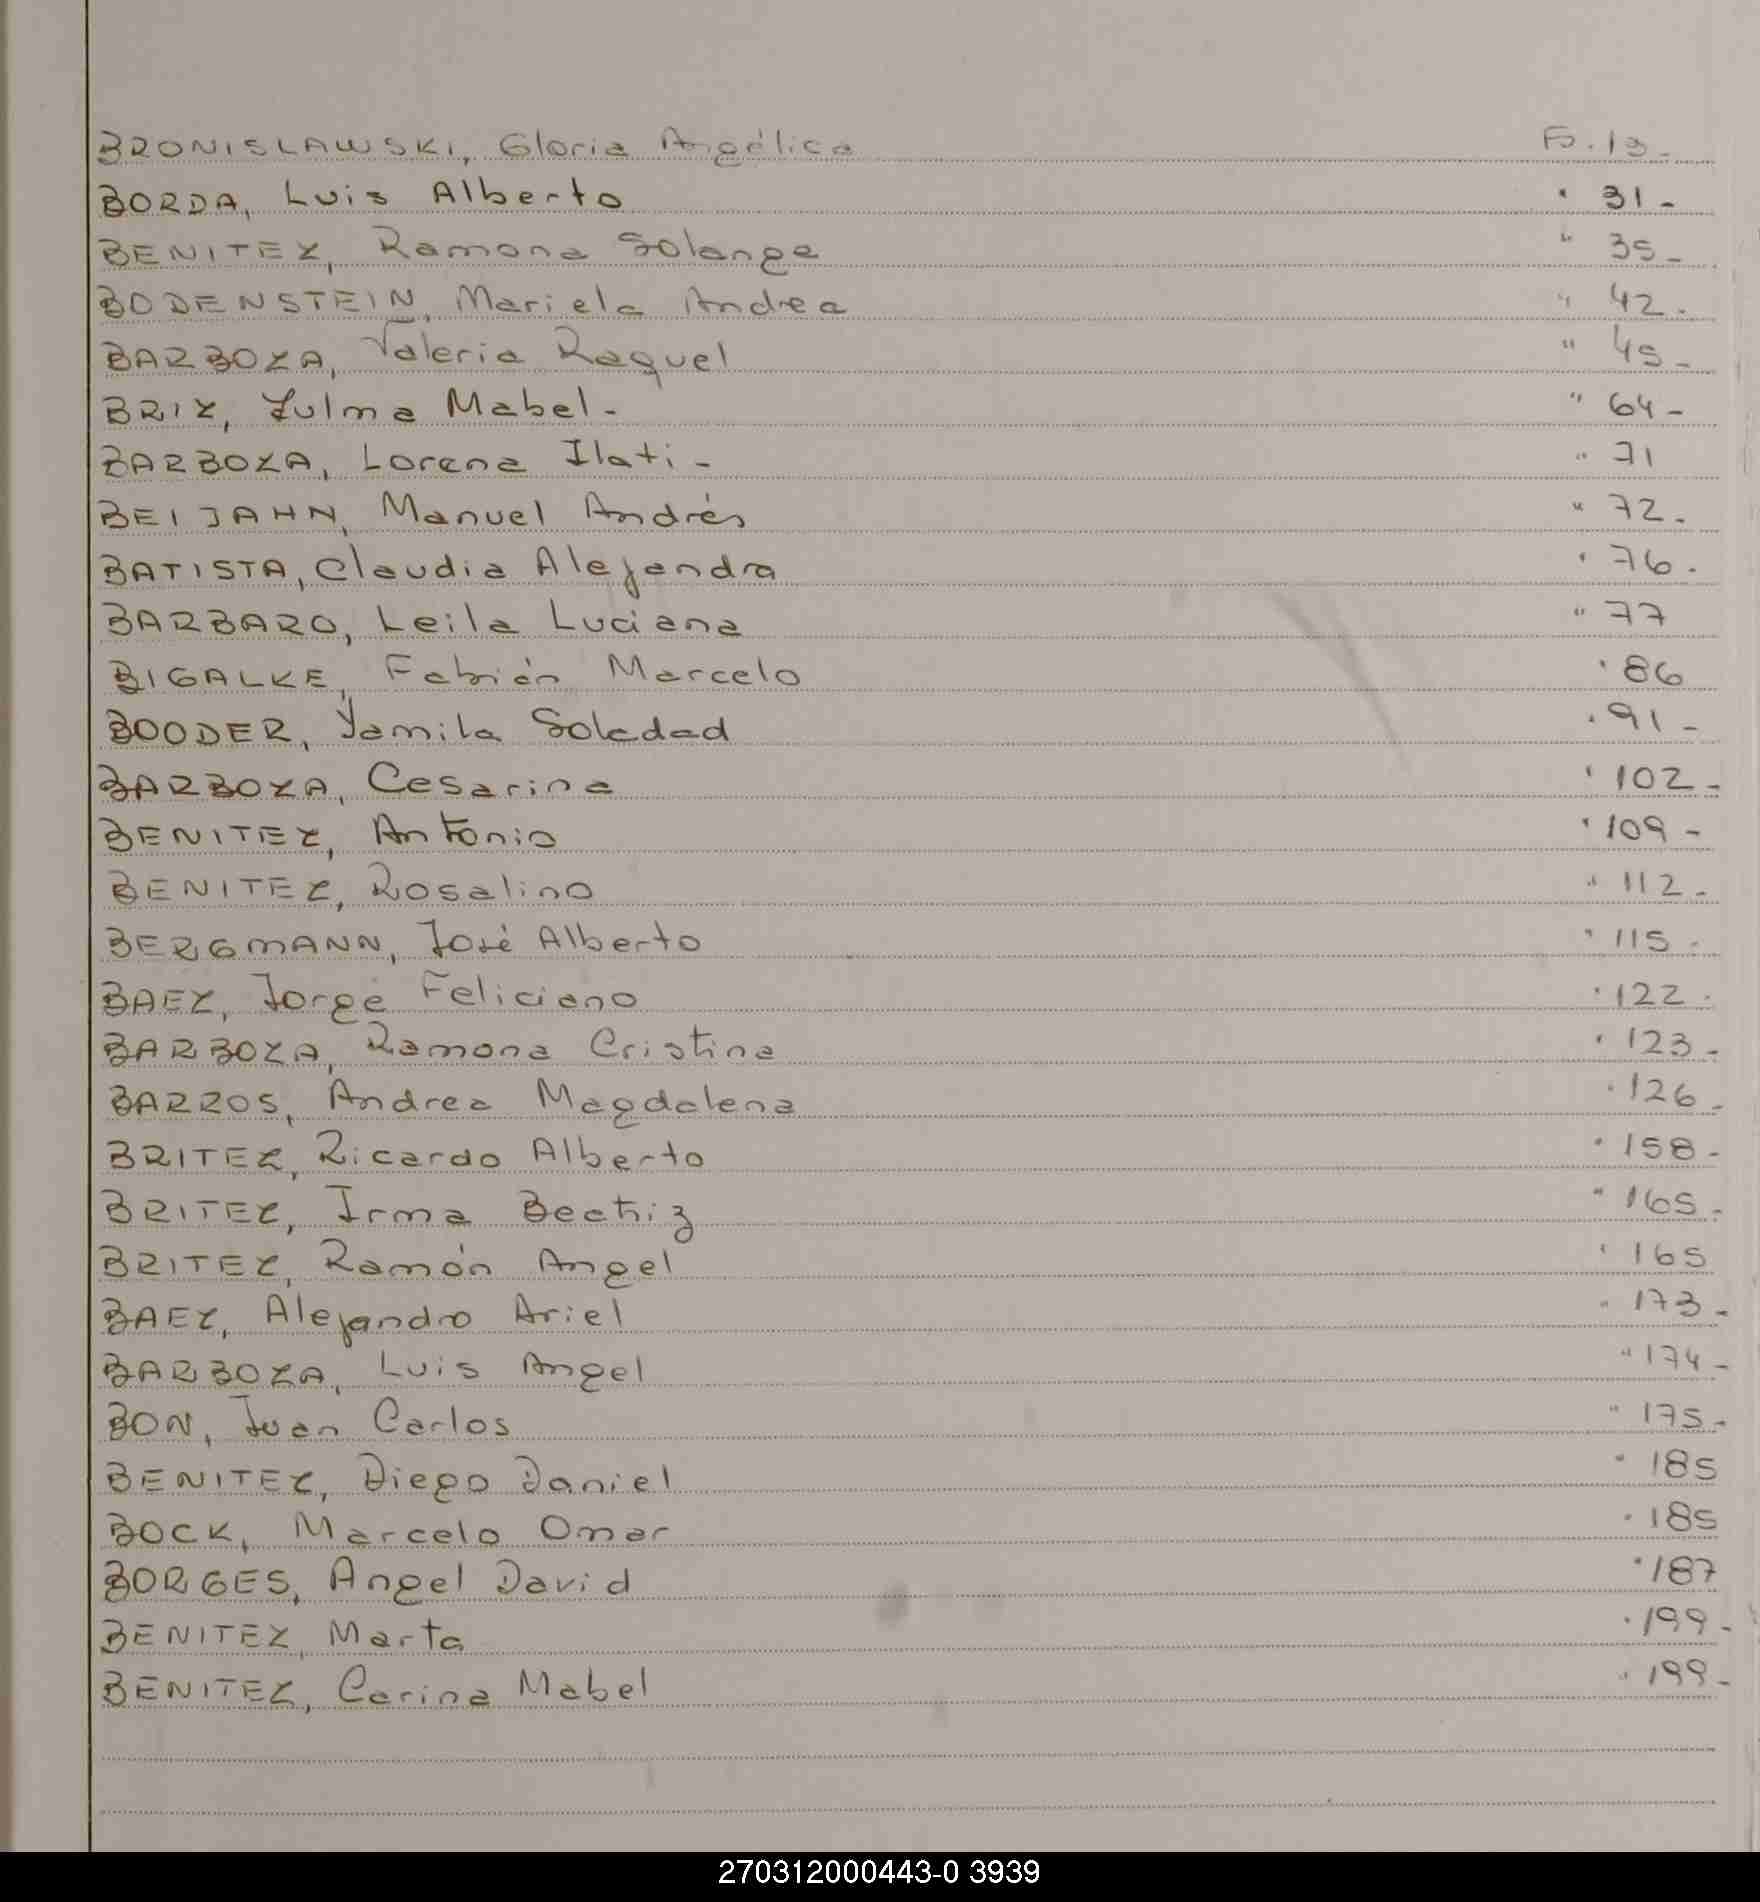 BRONISLAWSKI, Gloria Angélica Fo. 13-
BORDA, Luis Alberto " 31-
BENITEZ, Ramona Solange " 35-
BODENSTEIN, Mariela Andrea " 42-
BARBOZA, Valeria Raquel " 45-
BRIZ, Zulma Mabel- " 64-
BARBOZA, Lorena Ilati- " 71
BEIJAHN, Manuel Andrés " 72-
BATISTA, Claudia Alejandra " 76-
BARBARO, Leila Luciana " 77
BIGALKE, Fabián Marcelo " 86
BOODER, Yamila Soledad " 91-
BARBOZA, Cesarina " 102-
BENITEZ, Antonio " 109-
BENITEZ, Rosalino " 112-
BERGMANN, José Alberto " 115-
BAEZ, Jorge Feliciano " 122-
BARBOZA, Ramona Cristina " 123-
BARROS, Andrea Magdalena " 126-
BRITEZ, Ricardo Alberto " 158-
BRITEZ, Irma Beatriz " 165-
BRITEZ, Ramón Angel " 165
BAEZ, Alejandro Ariel " 173-
BARBOZA, Luis Angel " 174-
BON, Juan Carlos " 175-
BENITEZ, Diego Daniel " 185
BOCK, Marcelo Omar " 185
BORGES, Angel David " 187
BENITEZ, Marta " 199-
BENITEZ, Carina Mabel " 199-
270312000443-0 3939